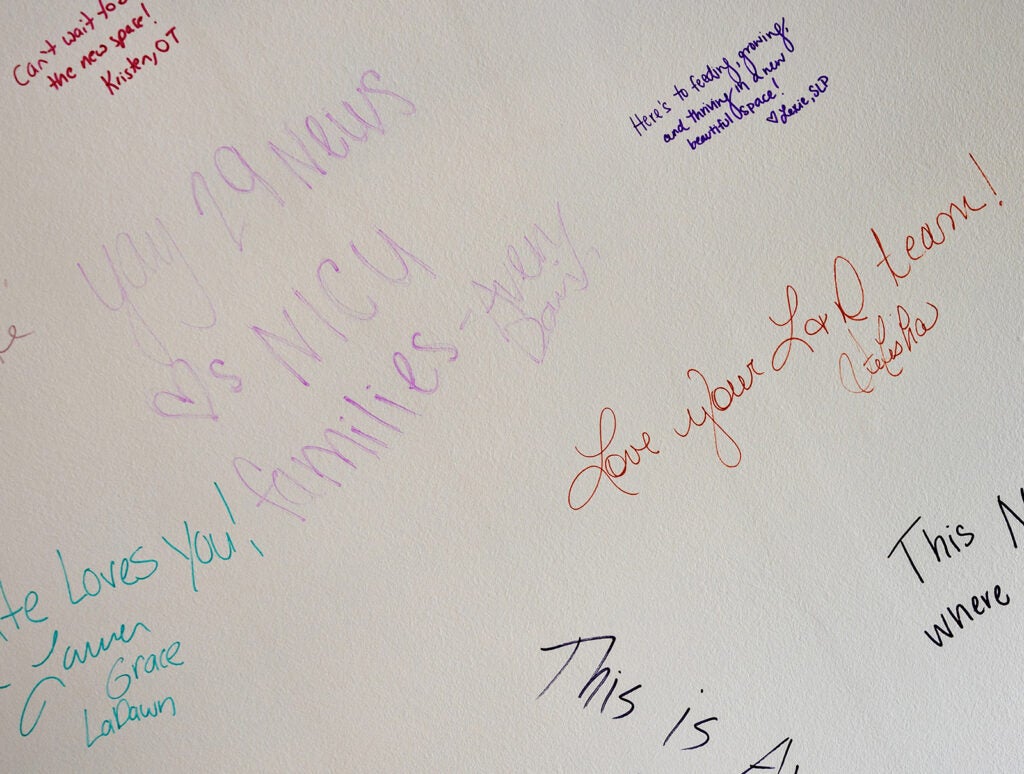 Can't wait to
the new space!
Kristen, OT
Here's to feeding, growing,
and thriving in a new
beautiful space!
♡ Lexie, SLP
yay 29 News
♡s NICU
families - Avery
Davis
Love your L&D team!
Loves You!
Grace
LaDawn
This
where
This is